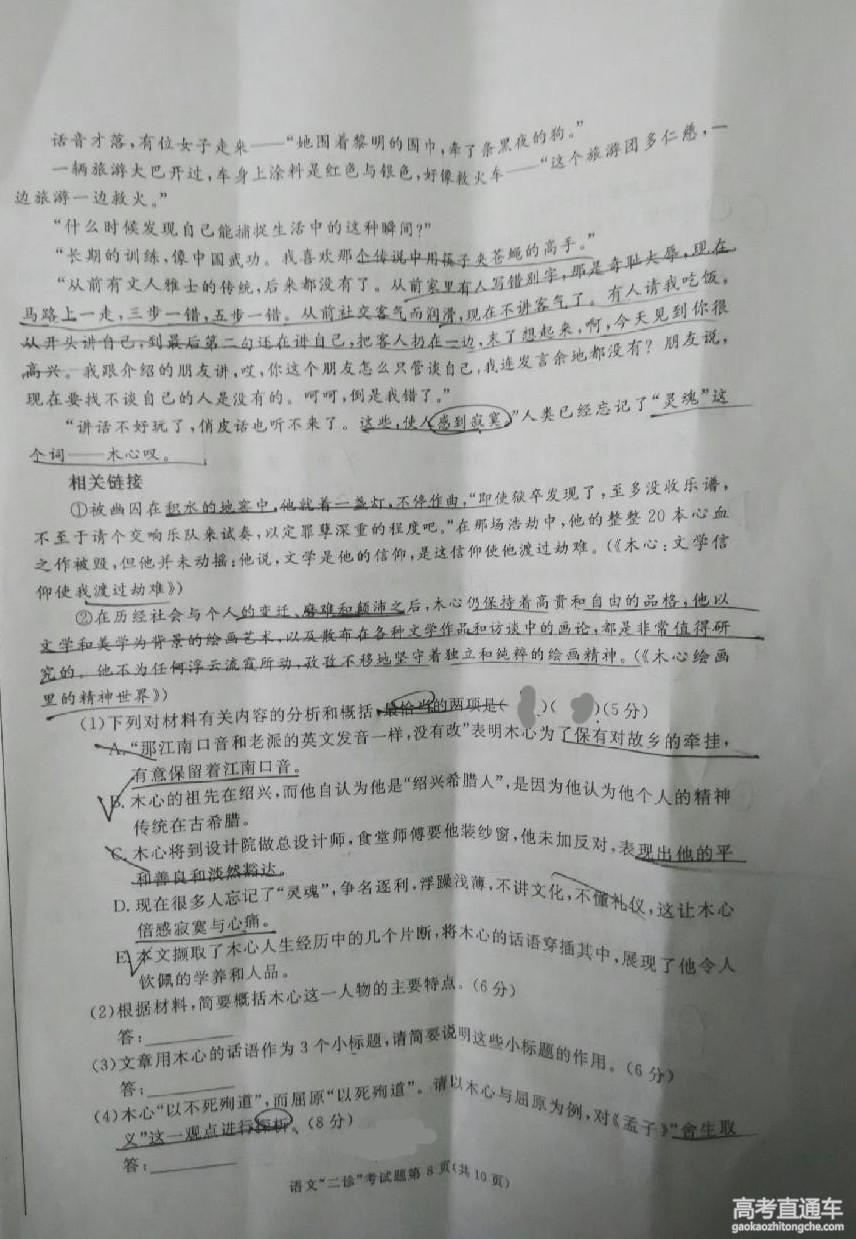 话音才落，有位女子走来——“她围着黎明的围巾，牵了条黑夜的狗。”
一辆旅游大巴开过，车身上涂料是红色与银色，好像救火车——“这个旅游团多仁慈，一
边旅游一边救火。”
“什么时候发现自己能捕捉生活中的这种瞬间？”
“长期的训练，像中国武功。我喜欢那个传说中用筷子夹苍蝇的高手。”
“从前有文人雅士的传统，后来都没有了。从前家里有人写错别字，那是奇耻大辱，现在
马路上一走，三步一错，五步一错。从前社交客气而润滑，现在不讲客气了。有人请我吃饭，
从开头讲自己，到最后第二句还在讲自己，把客人扔在一边，末了想起来，啊，今天见到你很
高兴。我跟介绍的朋友讲，哎，你这个朋友怎么只管谈自己，我连发言余地都没有？朋友说，
现在要找不谈自己的人是没有的。呵呵，倒是我错了。”
“讲话不好玩了，俏皮话也听不来了。这些，使人感到寂寞。”人类已经忘记了“灵魂”这
个词——木心叹。
相关链接
①被幽囚在积水的地窖中，他就着一盏灯，不停作曲，“即使狱卒发现了，至多没收乐谱，
不至于请个交响乐队来试奏，以定罪孽深重的程度吧。”在那场浩劫中，他的整整20本心血
之作被毁，但他并未动摇：他说，文学是他的信仰，是这信仰使他渡过劫难。（《木心：文学信
仰使我渡过劫难》）
②在历经社会与个人的变迁、磨难和颠沛之后，木心仍保持着高贵和自由的品格，他以
文学和美学为背景的绘画艺术，以及散布在各种文学作品和访谈中的画论，都是非常值得研
究的。他不为任何浮云流霞所动，孜孜不移地坚守着独立和纯粹的绘画精神。（《木心绘画
里的精神世界》）
（1）下列对材料有关内容的分析和概括，最恰当的两项是（ ）（ ）（5分）
A.“那江南口音和老派的英文发音一样，没有改”表明木心为了保有对故乡的牵挂，
有意保留着江南口音。
B.木心的祖先在绍兴，而他自认为他是“绍兴希腊人”，是因为他认为他个人的精神
传统在古希腊。
C.木心将到设计院做总设计师，食堂师傅要他装纱窗，他未加反对，表现出他的平
和善良和淡然豁达。
D.现在很多人忘记了“灵魂”，争名逐利，浮躁浅薄，不讲文化，不懂礼仪，这让木心
倍感寂寞与心痛。
E.本文撷取了木心人生经历中的几个片断，将木心的话语穿插其中，展现了他令人
钦佩的学养和人品。
（2）根据材料，简要概括木心这一人物的主要特点。（6分）
答：
（3）文章用木心的话语作为3个小标题，请简要说明这些小标题的作用。（6分）
答：
（4）木心“以不死殉道”，而屈原“以死殉道”。请以木心与屈原为例，对《孟子》“舍生取
义”这一观点进行探析。（8分）
答：
语文“二诊”考试题第8页（共10页）
高考直通车
gaokaozhitongche.com